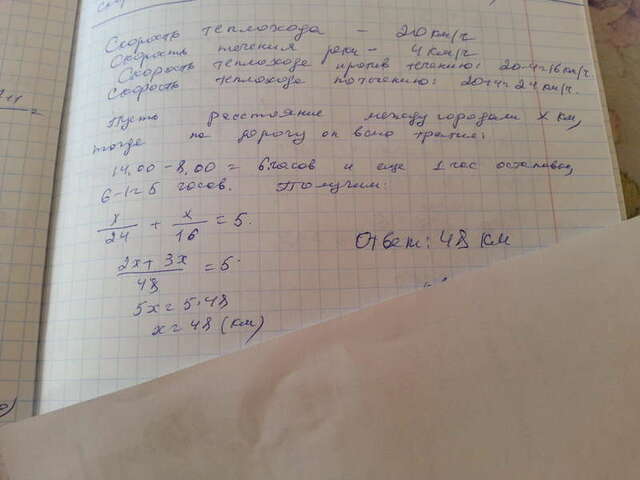 Скорость теплохода – 20 км/ч
Скорость течения реки – 4 км/ч
Скорость теплохода против течению: 20-4=16 км/ч.
Скорость теплохода по течению: 20+4=24 км/ч.
Пусть расстояние между городами x км,
тогда на дорогу он всего тратил:
14.00-8.00 = 6 часов и еще 1 час остановка,
6-1=5 часов. Получим:
x/24 + x/16 = 5.
(2x+3x)/48 = 5
5x=5·48
x=48 (км)
Ответ: 48 км